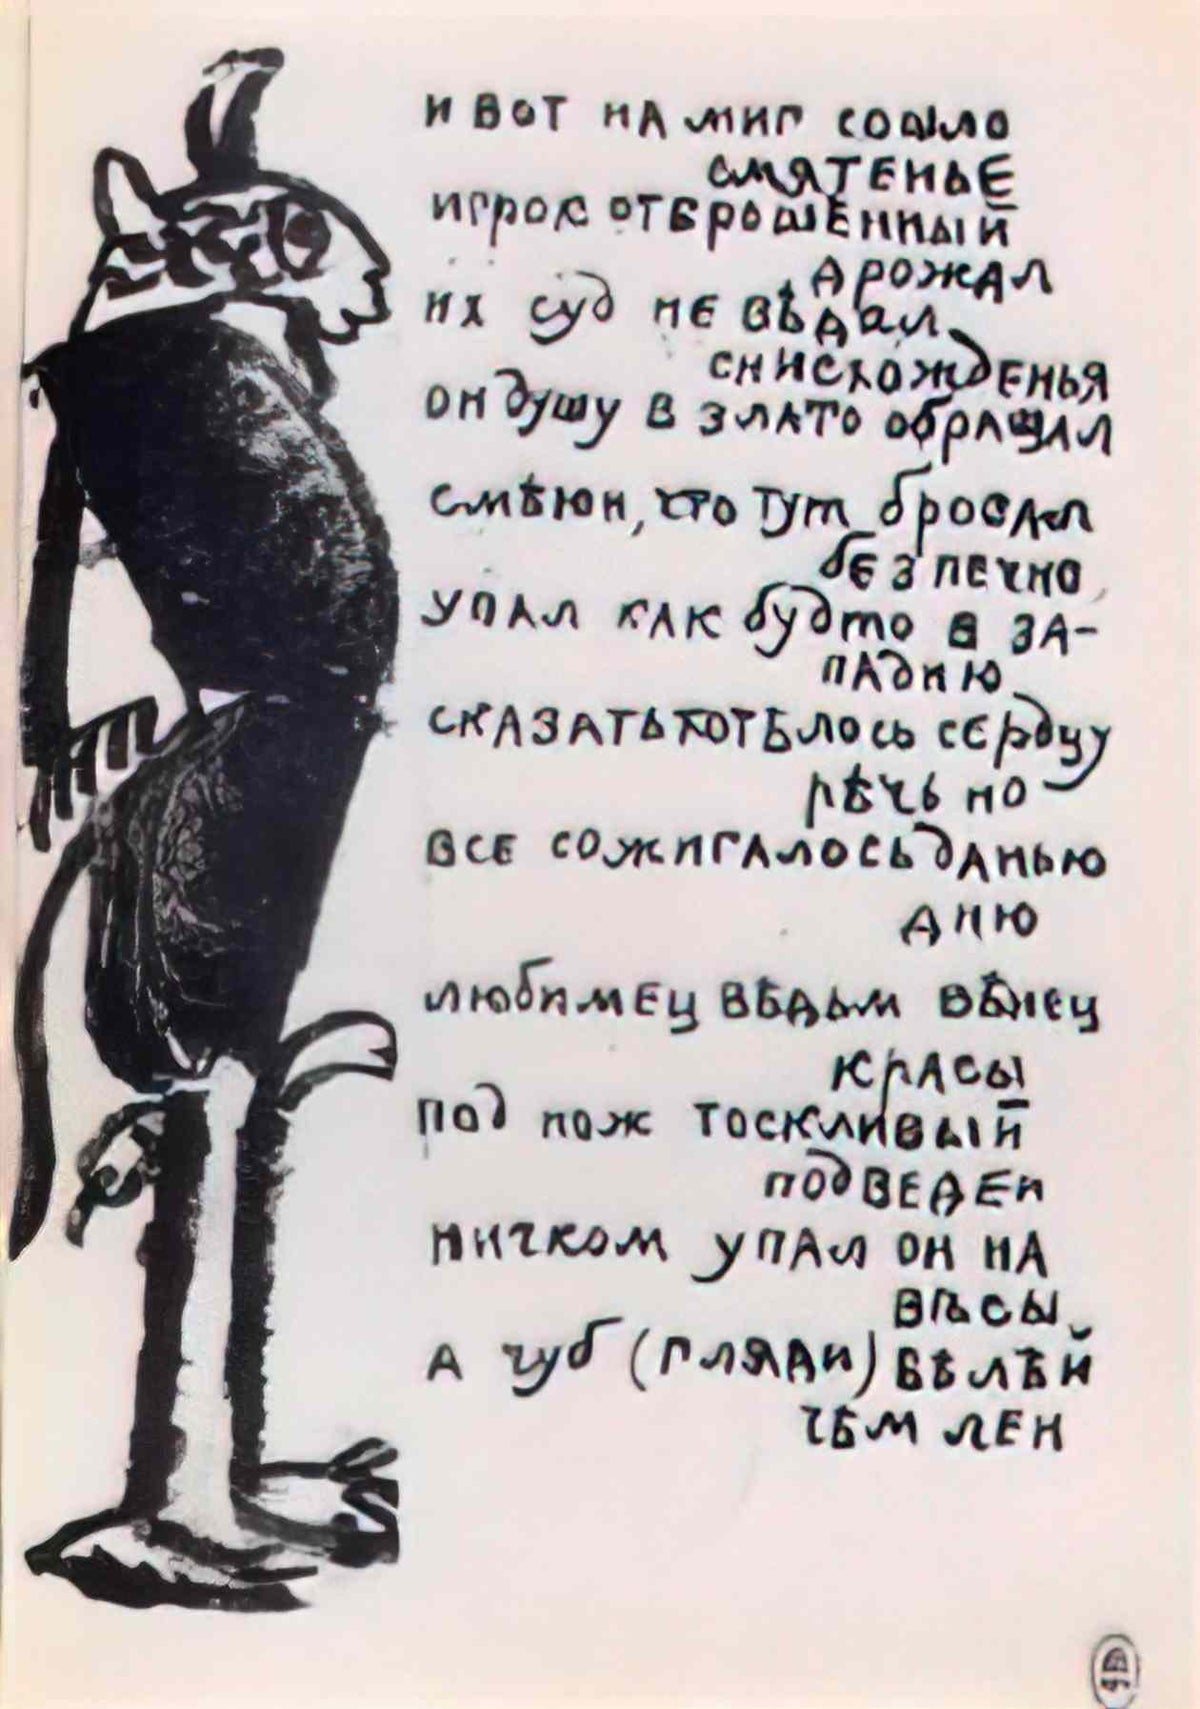 и вот на миг сошло
смятенье
игрок отброшенный
дрожал
их суд не вѣдал
снисхожденья
он душу в злато обращал
смѣюн, кто тут бросал
безпечно
упал как будто в за-
падню
сказать хотѣлось сердцу
рѣчь но
все сожигалось данью
дню
любимец вѣдьм вѣнец
красы
под нож тоскливый
подведен
ничком упал он на
вѣсы
а чуб (гляди) бѣлѣй
чѣм лен